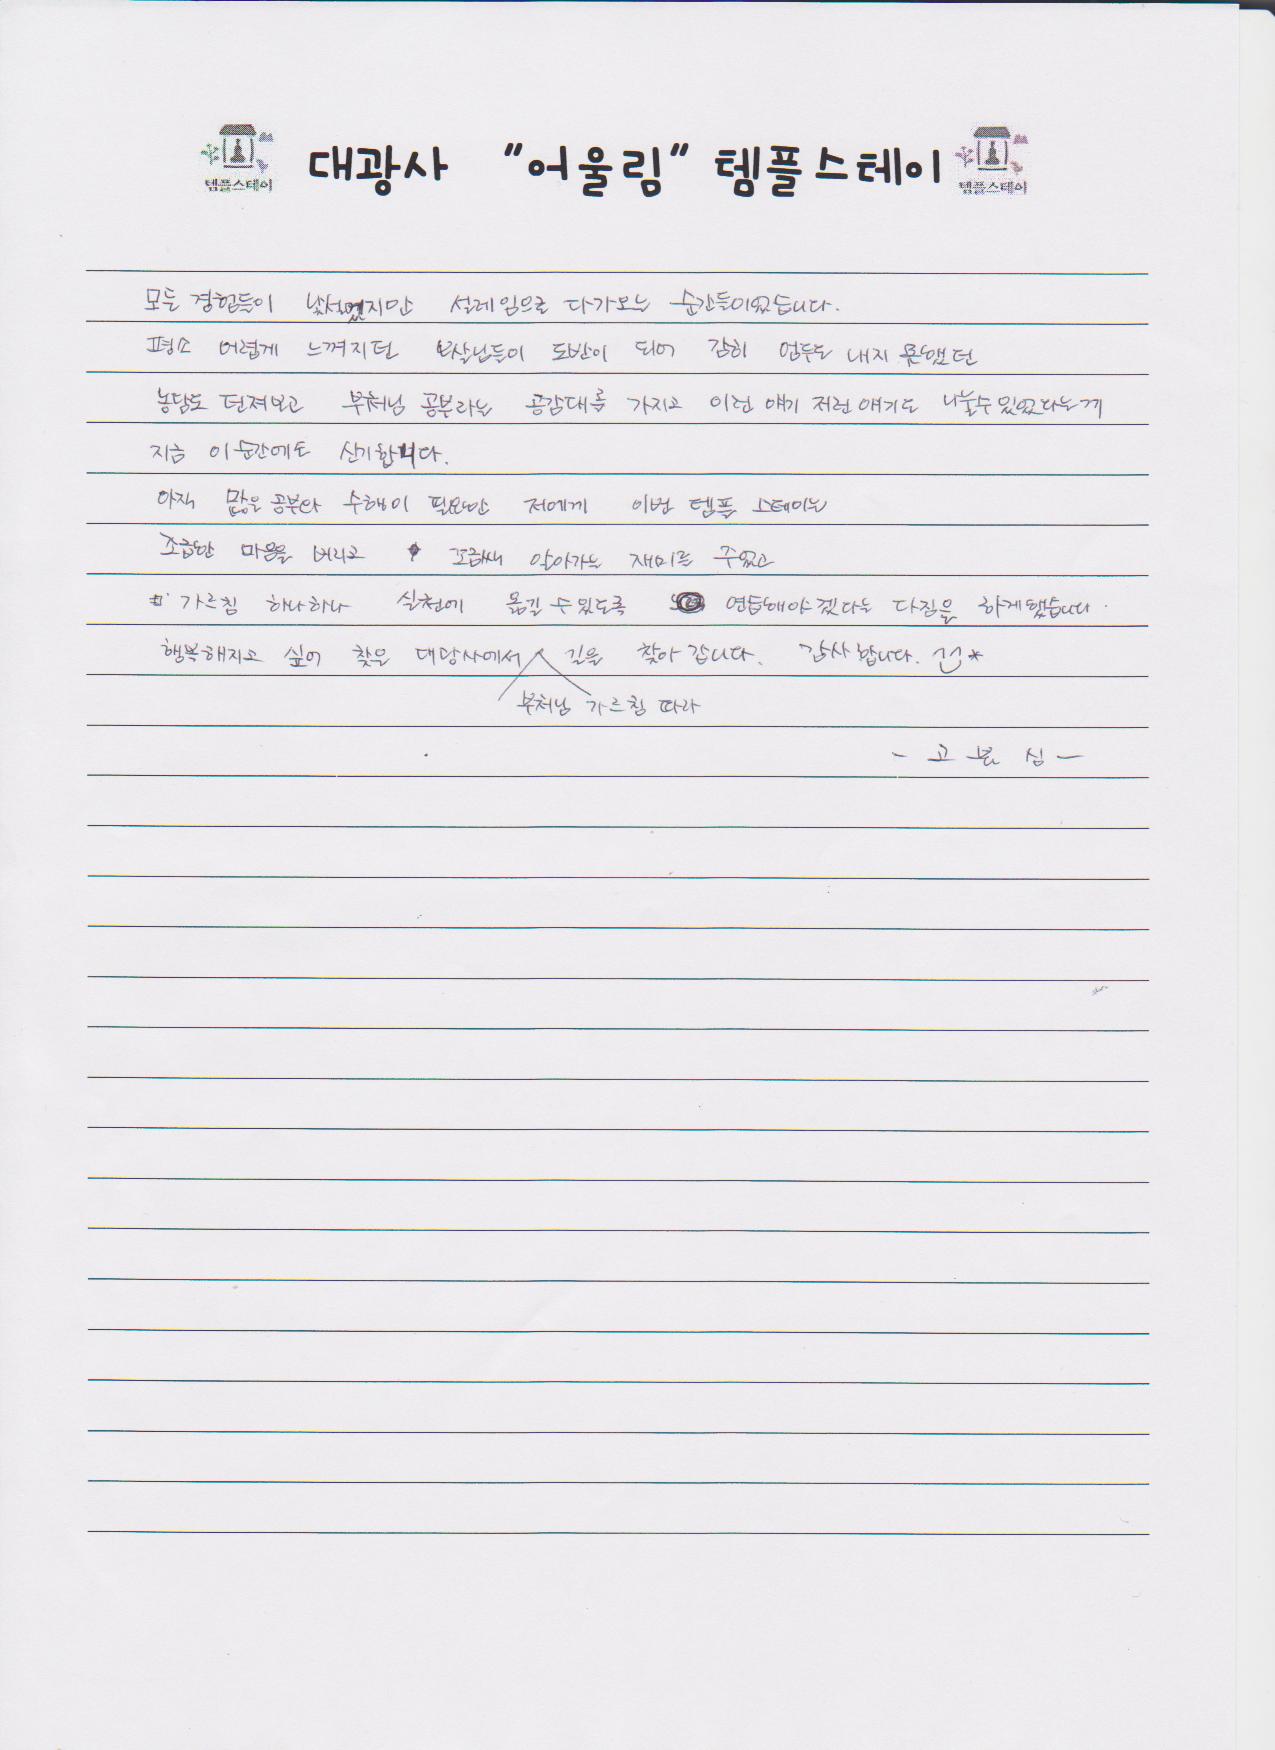 템플스테이 대광사 "어울림" 템플스테이 템플스테이
모든 경험들이 낯설었지만 설레임으로 다가오는 순간들이었습니다.
평소 어렵게 느껴지던 보살님들이 도반이 되어 감히 엄두도 내지 못했던
농담도 던져보고 부처님 공부라는 공감대를 가지고 이런 얘기 저런 얘기도 나눌수 있었다는게
지금 이 순간에도 신기합니다.
아직 많은 공부와 수행이 필요한 저에게 이번 템플 스테이는
조급한 마음을 버리고 조금씩 알아가는 재미를 주었고
가르침 하나하나 실천에 옮길 수 있도록 연습해야겠다는 다짐을 하게됐습니다.
행복해지고 싶어 찾은 대광사에서 길을 찾아 갑니다. 감사합니다. ^^*
부처님 가르침 따라
- 고 본 심 -